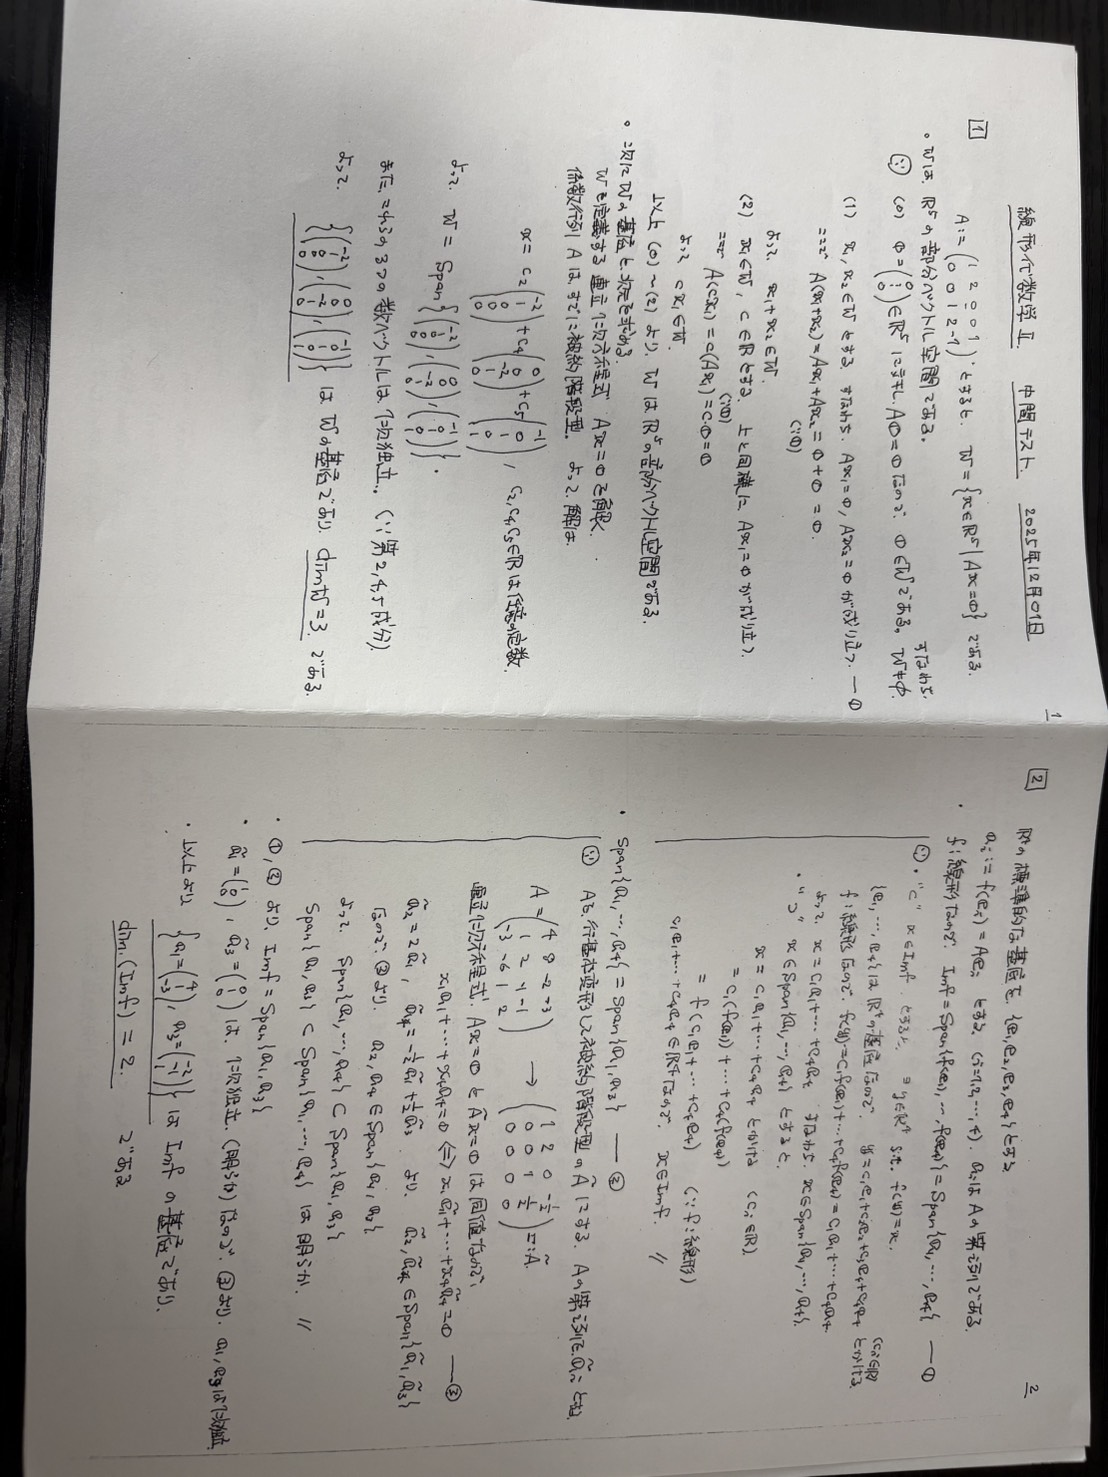 線形代数学Ⅱ 中間テスト 2025年12月01日
1
1
A := (1 2 0 0 1
0 0 1 2 -1), とすると. W = {x∈R⁵ | Ax=0} である.
・Wは. R⁵の部分ベクトル空間である.
∵ (0) 0 = (0 ⋮ 0) ∈R⁵ に対し. A0=0 なので. 0∈Wである. すなわち. W≠φ.
(1) x₁, x₂∈W とする すなわち. Ax₁=0, Ax₂=0 が成り立つ. ―①
ここで A(x₁+x₂)=Ax₁+Ax₂ = 0+0 = 0.
(∵①)
よって. x₁+x₂∈W.
(2) x∈W, c∈Rとする. 上と同様に Ax₁=0 が成り立つ.
ここで A(cx₁) = c(Ax₁) = c·0=0
(∵①)
よって cx₁∈W.
以上 (0)~(2) より. WはR⁵の部分ベクトル空間である.
・次に Wの基底と次元を求める.
Wを定義する連立1次方程式 Ax=0 を解く.
係数行列 A は すでに被約階段型. よって. 解は.
x = c₂(-2 1 0 0 0) + c₄(0 0 -2 1 0) + c₅(-1 0 1 0 1), c₂, c₄, c₅∈R は任意の定数.
よって. W = Span{(-2 1 0 0 0), (0 0 -2 1 0), (-1 0 1 0 1)}.
また. これらの3つの数ベクトルは1次独立. (∵第2,4,5成分).
よって. {(-2 1 0 0 0), (0 0 -2 1 0), (-1 0 1 0 1)} は Wの基底であり. dimW=3. である.
2
2
R⁴の標準的な基底を. {e₁, e₂, e₃, e₄}とする
aᵢ := f(eᵢ) = Aeᵢ とする (i=1,2,…,4). aᵢは Aの第i列である.
・f:線形なので. Imf = Span{f(e₁), … f(e₄)} = Span{a₁, …, a₄} ―①
∵ ・"⊂" x∈Imf とすると, ∃y∈R⁴ s.t. f(y)=x.
{e₁, …, e₄}は R⁴の基底なので. y=c₁e₁+c₂e₂+c₃e₃+c₄e₄ とかける (cᵢ∈R)
f:線形なので. f(y)=c₁f(e₁)+…+c₄f(e₄) = c₁a₁+…+c₄a₄
よって. x=c₁a₁+…+c₄a₄ すなわち. x∈Span{a₁, …, a₄}.
・"⊃" x∈Span{a₁, …, a₄} とすると.
x = c₁a₁+…+c₄a₄ とかける (cᵢ∈R).
= c₁(f(e₁)) + … + c₄(f(e₄))
= f(c₁e₁+…+c₄e₄) (∵f:線形)
c₁e₁+…+c₄e₄∈R⁴なので. x∈Imf. //
・Span{a₁, …, a₄} = Span{a₁, a₃} ―②
∵ Aを行基本変形して被約階段型のÃにする. Aの第i列をãᵢとする.
A = (4 8 -2 -3
1 2 -1 -1
-3 -6 1 2) → (1 2 0 -½
0 0 1 ½
0 0 0 0) =: Ã.
連立1次方程式. Ax=0 と Ãx=0 は同値なので,
x₁a₁+…+x₄a₄=0 ⇔ x₁ã₁+…+x₄ã₄=0 ―③
ã₂=2ã₁, ã₄=-½ã₁+½ã₃. より ã₂, ã₄∈Span{ã₁, ã₃}
なので. ③より. a₂, a₄∈Span{a₁, a₃}
よって. Span{a₁, …, a₄} ⊂ Span{a₁, a₃}
Span{a₁, a₃} ⊂ Span{a₁, …, a₄} は明らか. //
・①, ②より. Imf = Span{a₁, a₃}
ã₁=(1 0 0), ã₃=(0 1 0) は. 1次独立. (明らか) なので. ③より. a₁, a₃は1次独立
・以上より {a₁=(4 1 -3), a₃=(-2 -1 1)} は Imfの基底であり.
dim(Imf) = 2. である